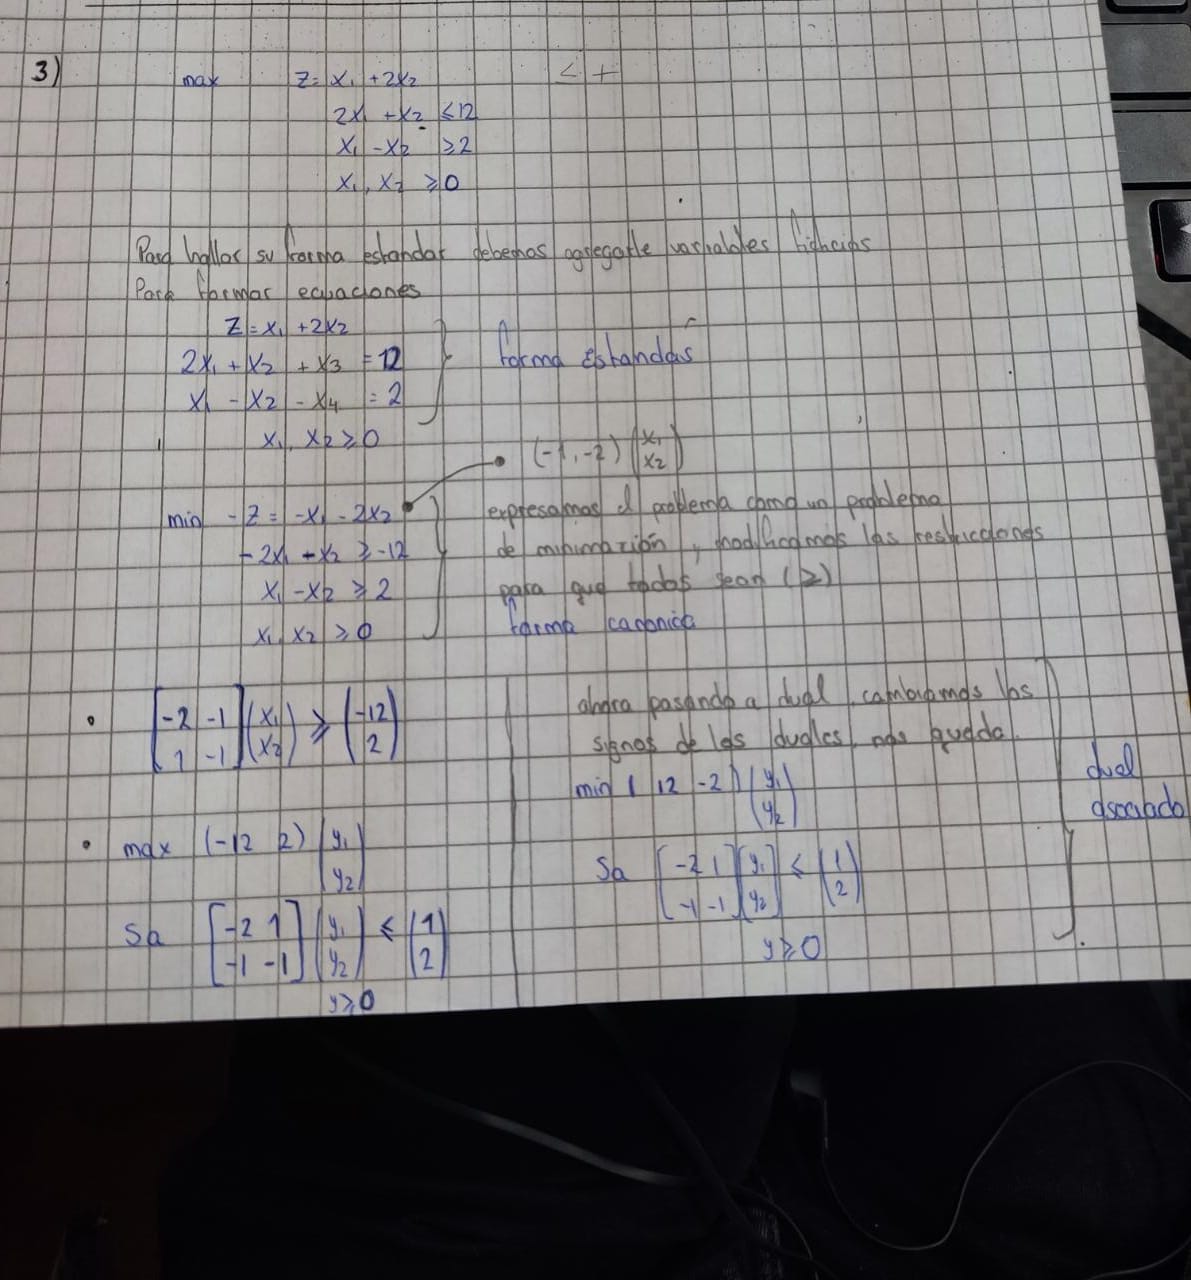 3)
max Z = x₁ + 2x₂ < +
2x₁ + x₂ ≤ 12
x₁ - x₂ ≥ 2
x₁, x₂ ≥ 0
Para hallar su forma estandar debemos agregarle variables
Para formar ecuaciones
Z = x₁ + 2x₂
2x₁ + x₂ + x₃ = 12
forma Estandar
x₁ - x₂ - x₄ = 2
x₁, x₂ ≥ 0
(-1, -2) (x₁ x₂)
min - Z = -x₁ - 2x₂
-2x₁ - x₂ ≥ -12
x₁ - x₂ ≥ 2
x₁, x₂ ≥ 0
expresamos el problema como un problema
de minimazión, modificamos las restricciones
para que todas sean (≥)
forma canonica
[-2 -1] (x₁) ≥ (-12)
[1 -1] (x₂) (2)
max (-12 2) (y₁
y₂)
Sa [-2 1] (y₁) ≤ (1)
[-1 -1] (y₂) (2)
y ≥ 0
ahora pasando a dual, cambiamos los
signos de las duales, nos queda
min (12 -2) (y₁
y₂)
Sa [-2 1] [y₁] ≤ (1)
[-1 -1] [y₂] (2)
y ≥ 0
dual
asociado